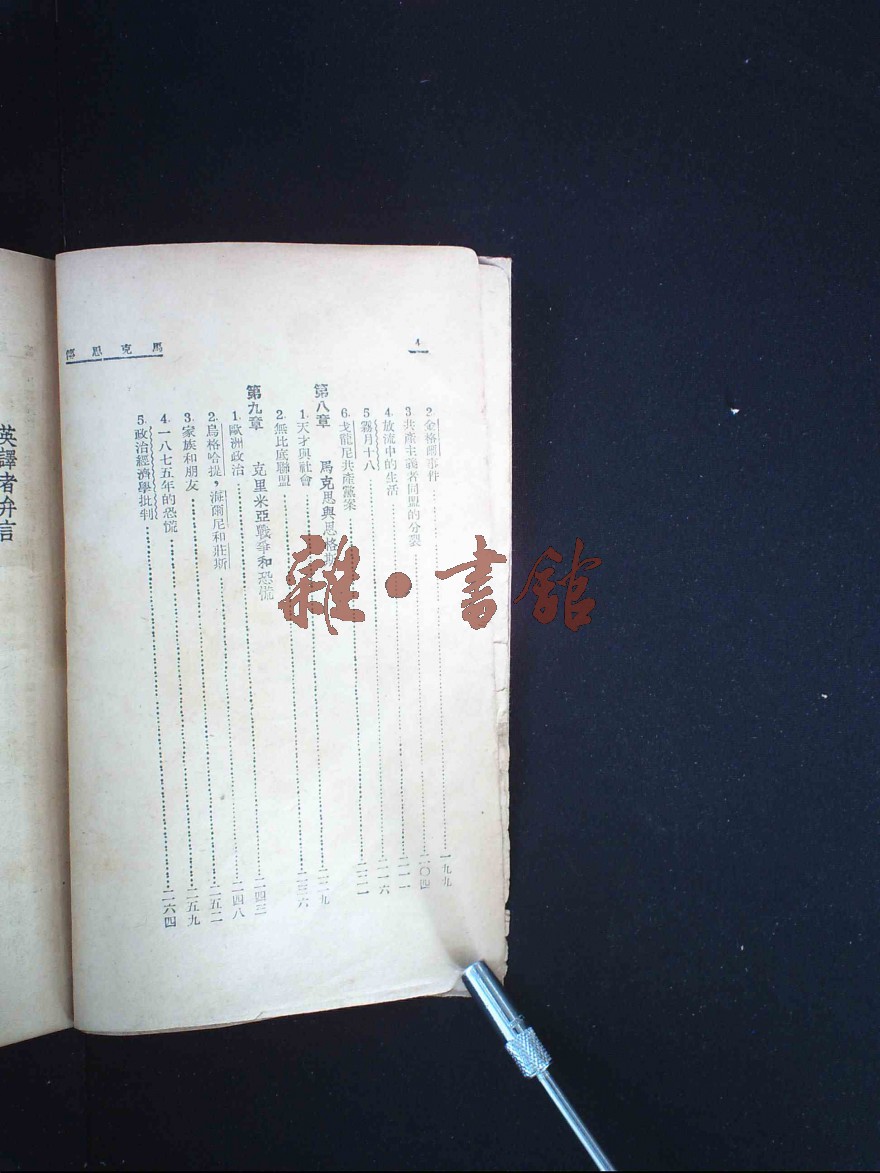 4
馬克思傳
2. 金格爾事件……一九九
3. 共產主義者同盟的分裂……二〇四
4. 放流中的生活……二一一
5. 霧月十八……二一六
6. 戈龍尼共產黨案……二二一
第八章 馬克思與恩格斯
1. 天才與社會……二二九
2. 無比底聯盟……二三六
第九章 克里米亞戰爭和恐慌
1. 歐洲政治……二四三
2. 烏格哈提，海爾尼和莊斯……二四八
3. 家族和朋友……二五二
4. 一八七五年的恐慌……二五九
5. 政治經濟學批判……二六四
英譯者弁言
雜·書館